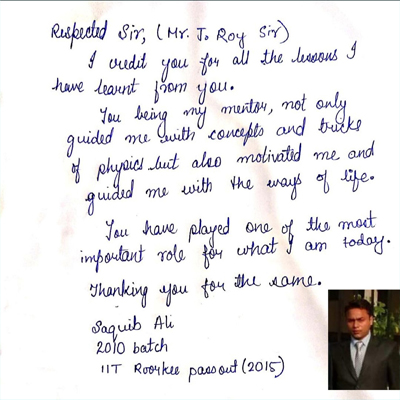 Respected Sir, (Mr. J. Roy Sir)
I credit you for all the lessons I
have learnt from you.
You being my mentor, not only
guided me with concepts and tricks
of physics but also motivated me and
guided me with the ways of life.
You have played one of the most
important role for what I am today.
Thanking you for the same.
Saquib Ali
2010 batch
IIT Roorkee passout (2015)